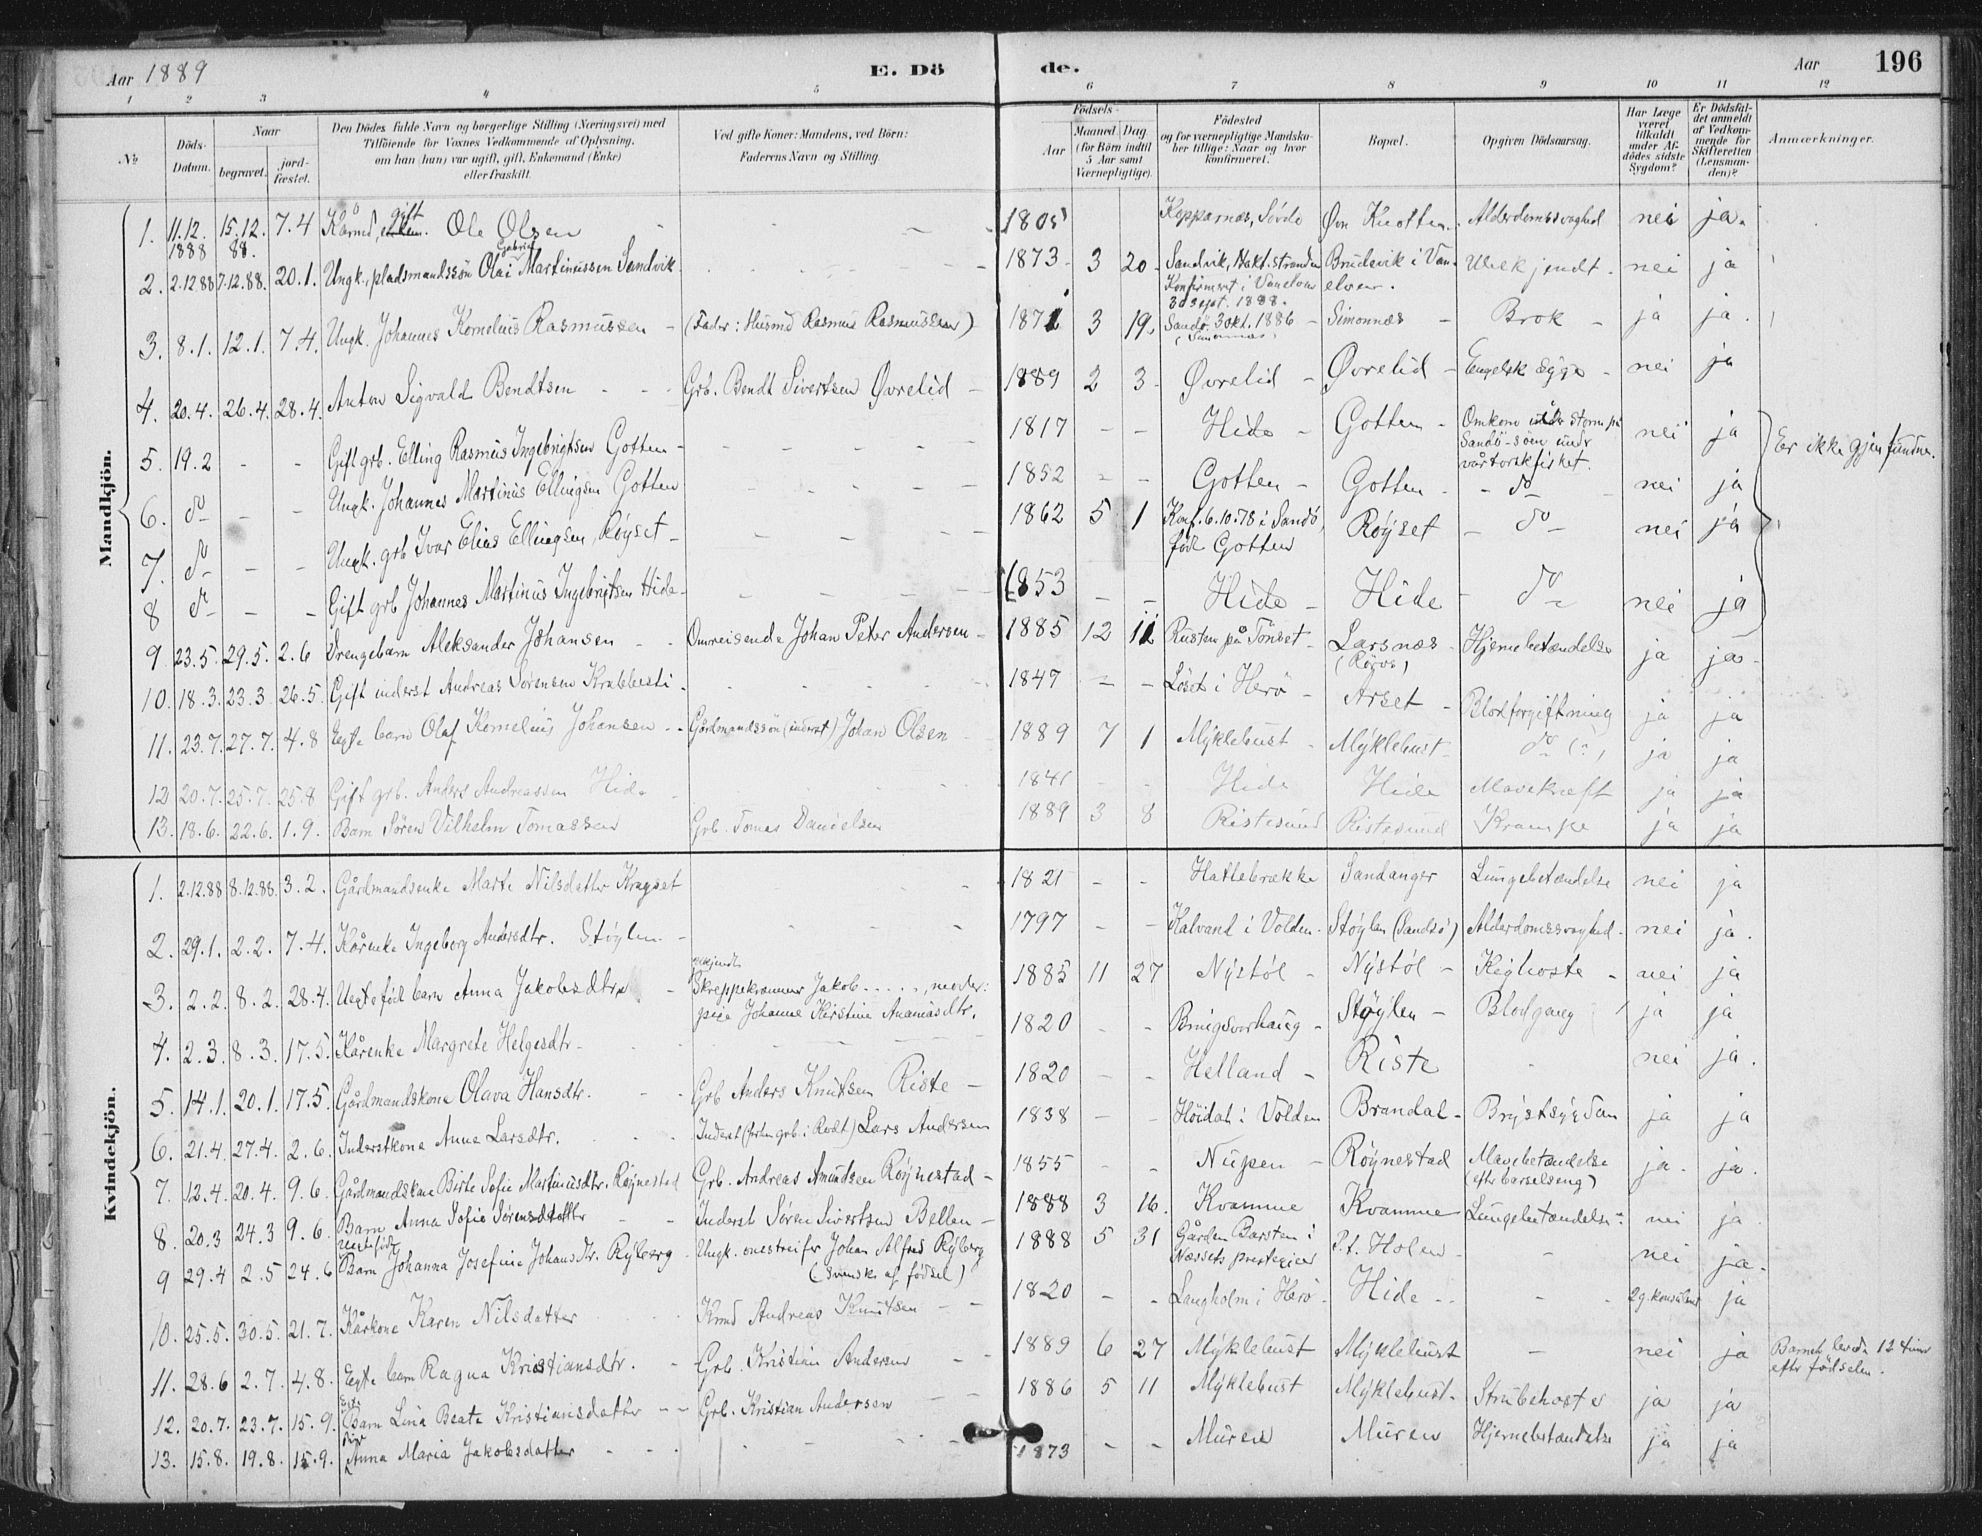 Aar 1889 E. Dö de. Aar 196
1 2 3 4 5 6 7 8 9 10 11 12
No
Döds-Datum.
Naar
begravet.
jord-fæstet.
Den Dödes fulde Navn og borgerlige Stilling (Næringsvei) med
Tilföiende for Voxnes Vedkommende af Oplysning,
om han (hun) var ugift, gift, Enkemand (Enke)
eller fraskilt.
Ved gifte Koner: Mandens, ved Börn:
Faderens Navn og Stilling.
Födsels-
Aar
Maaned Dag
(for Börn indtil
5 Aar samt
Værnepligtige).
Födested
og for værnepligtige Mandska-
ber tillige: Naar og hvor
konfirmeret.
Bopæl.
Opgiven Dödsaarsag.
Har Læge
været
tilkaldt
under Af-
dödes sidste
Sygdom?
Er Dödsfal-
det anmeldt
af Vedkom-
mende for
Skifteretten
(Lensman-
den)?
Anmærkninger.
Mandkjön.
1. 11.12. 1888 15.12. 88. 7.4 Kårmd, gift Ole Olsen - - 1805 Kopparnæs, Sövde Øvr Knotten. Alderdomssvaghed nei ja.
2. 2.12.88 7.12.88. 20.1. Ungk., pladsmandssön Olai Gabriel Martinussen Sandvik. 1873 3 20 Sandvik, Hakt.stranden Konfirmeret i Vanelven 30 sept. 1888. Brudevik i Vanelven. Ubekjendt. nei ja
3. 8.1. 12.1. 7.4. Ungk. Johannes Kornelius Rasmussen - (Fader: Husmd Rasmus Rasmussen) 1871 3 19. Sandö. 3 okt. 1886 - Simonnæs - Brok - ja ja.
4. 20.4. 26.4. 28.4. Anton Sigvald Bendtsen - - - Grb. Bendt Sivertsen Øvrelid - 1889 2 3 Øvrelid - Øvrelid - Engelsk sygge - nei ja
5. 19.2 - - Gift grb. Elling Rasmus Ingebrigtsen Gotten - 1817 - - Hide - Gotten - Omkom under storm på Sandö-söen under vårtorskfisket. nei ja Er ikke gjenfundne.
6. do - - Ungk. Johannes Martinus Ellingsen Gotten 1852 - - Gotten - Gotten - - do - nei ja
7. do - - Ungk. grb Ivar Elias Ellingsen Röyset - 1862 5 1 Konf. 6.10.78 i Sandö, född Gotten Röyset - do - nei ja
8 do - - Gift grb Johannes Martinus Ingebrigtsen Hide - 1853 - - Hide - Hide - do nei ja
9 23.5. 29.5. 2.6 Drengebarn Aleksander Johansen - - Omreisende Johan Peter Andersen - 1885 12 11 Rusten på Tönset - Larsnæs - (Röros) Hjernebetændelse ja ja -
10. 18.3. 23.3 26.5 Gift inderst Andreas Sörensen Krabbesti - 1847 - - Löset i Herö - Årset - Blodforgiftning ja ja
11. 23.7. 27.7. 4.8 Egte barn Olaf Kornelius Johansen - - Gårdmandssön (inderst) Johan Olsen 1889 7 1 Myklebust - Myklebust - do (?) ja ja
12 20.7. 25.7. 25.8 Gift grb. Anders Andreassen Hide 1841 - - Hide Hide Mavekræft ja ja
13. 18.6. 22.6. 1.9. Barn Sören Vilhelm Tomassen Grb. Tomas Danielsen 1889 3 8 Ristesund Ristesund Krampe ja ja
Kvindekjön.
1. 2.12.88 8.12.88. 3.2. Gårdmandsenke Marte Nilsdatter Kragset 1821 - - Hattebrække Sandanger Lungebetændelse nei ja
2. 29.1. 2.2. 7.4. Kårenke Ingeborg Andersdtr. Stöylen - 1797 - - Kalvand i Volden - Stöylen (Sandsö) Alderdomssvaghed - nei ja.
3. 2.2. 8.2. 28.4. Uegtefödt barn Anna Jakobsdtr. - Skreppekræmmer Jakob ....., moder: pige Johanne Kirstine Ananiasdtr. 1885 11 27 Nystöl - Nystöl - Kighoste - nei ja
4. 2.3. 8.3. 17.5. Kårenke Margrete Helgesdtr - 1820 - - Bringsvorhaug - Stöylen - Blodgang ja ja
5. 14.1. 20.1. 17.5. Gårdmandskone Olava Hansdtr. - - Grb Anders Knutsen Riste - 1820 - - Helland - Riste - nei ja.
6. 21.4. 27.4. 2.6. Inderstkone Anne Larsdtr. Inderst (forhen grb. i Rødt) Lars Andersen 1838 - - Höidal i Volden Brandal - Brystsygdom ja ja
7. 12.4. 20.4. 9.6. Gårdmandskone Birte Sofie Martinusdtr. Röynestad Grb. Andreas Amundsen Röynestad - 1855 - - Nupen - Röynestad Mavebetændelse (efter barselseng) ja. ja.
8. 20.3 24.3 9.6. Barn Anna Sofie Sörensdatter - - Inderst Sören Sivertsen Bellen - 1888 3 16. Kvamme Kvamme Lungebetændelse - nei ja
9 29.4 2.5 24.6 Uegtefödt Barn Johanna Josefine Johansdtr. Ryberg - Ungk. onestreifer Johan Alfred Ryberg (svensk af födsel) 1888 5 31 Gården Barsten i Næssets prestegjeld P.t. Holen - - nei ja.
10. 25.5. 30.5. 21.7. Kårkone Karen Nilsdatter Kmd Andreas Knutsen - - 1820 - - Langholm i Herö - Hide - - - ja
11. 28.6 2.7. 4.8. Egte barn Ragna Kristiansdtr. - Grb. Kristian Andersen - - 1889 6 27 Myklebust Myklebust - nei ja Barnet levede 12 timer efter födselen.
12. 20.7. 23.7. 15.9. Egte Barn Lina Beate Kristiansdatter - - Grb. Kristian Andersen 1886 5 11 Myklebust Myklebust. Strubehoste ja ja
13. 15.8. 19.8. 15.9. Pige Anna Maria Jakobsdatter - - 1873 - - Muren Muren Hjernebetændelse ja ja